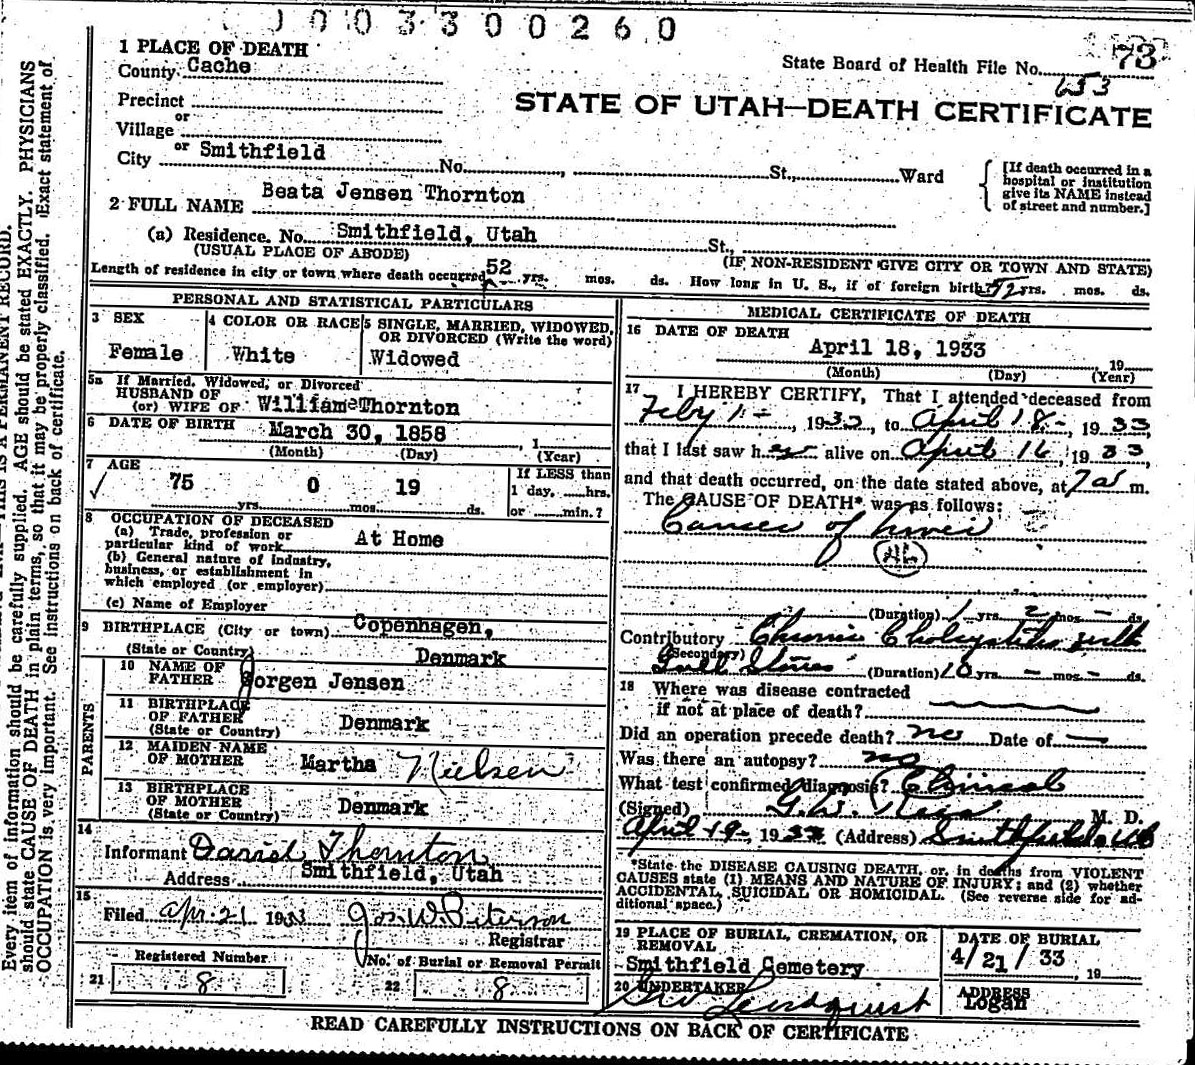 003300260
1 PLACE OF DEATH
County Cache
State Board of Health File No. 73
653
STATE OF UTAH—DEATH CERTIFICATE
Precinct
or
Village
or
City Smithfield No. , St., Ward
{ [If death occurred in a hospital or institution give its NAME instead of street and number.]
2 FULL NAME Beata Jensen Thornton
(a) Residence. No. Smithfield, Utah St.,
(USUAL PLACE OF ABODE) (IF NON-RESIDENT GIVE CITY OR TOWN AND STATE)
Length of residence in city or town where death occurred 52 yrs. mos. ds. How long in U. S., if of foreign birth? 52 yrs. mos. ds.
PERSONAL AND STATISTICAL PARTICULARS
3 SEX
Female
4 COLOR OR RACE
White
5 SINGLE, MARRIED, WIDOWED, OR DIVORCED (Write the word)
Widowed
5a If Married, Widowed, or Divorced
HUSBAND OF
(or) WIFE OF William Thornton
6 DATE OF BIRTH March 30, 1858 , 1
(Month) (Day) (Year)
7 AGE
75 yrs. 0 mos. 19 ds.
If LESS than
1 day, hrs.
or min.?
8 OCCUPATION OF DECEASED
(a) Trade, profession or
particular kind of work At Home
(b) General nature of industry,
business, or establishment in
which employed (or employer)
(c) Name of Employer
9 BIRTHPLACE (City or town) Copenhagen,
(State or Country) Denmark
PARENTS
10 NAME OF
FATHER Jorgen Jensen
11 BIRTHPLACE
OF FATHER
(State or Country) Denmark
12 MAIDEN NAME
OF MOTHER Martha Nielsen
13 BIRTHPLACE
OF MOTHER
(State or Country) Denmark
14
Informant David Thornton
Address Smithfield, Utah
15
Filed Apr. 21 1933 Jos. W. Peterson
Registrar
Registered Number
21 8
No. of Burial or Removal Permit
22 8
MEDICAL CERTIFICATE OF DEATH
16 DATE OF DEATH
April 18, 1933 , 19
(Month) (Day) (Year)
17 I HEREBY CERTIFY, That I attended deceased from
Feby 1 - , 1933, to April 18 - , 1933,
that I last saw her alive on April 16, 1933,
and that death occurred, on the date stated above, at 7 a m.
The CAUSE OF DEATH* was as follows:
Cancer of Liver
46
(Duration) 1 yrs. 2 mos. - ds.
Contributory Chronic Cholecystitis with
(Secondary)
Gall Stones (Duration) 10 yrs. - mos. - ds.
18 Where was disease contracted
if not at place of death?
Did an operation precede death? no Date of —
Was there an autopsy? no
What test confirmed diagnosis? Clinical
(Signed) G.W. M. D.
April 19 -, 1933 (Address) Smithfield Ut
*State the DISEASE CAUSING DEATH, or, in deaths from VIOLENT
CAUSES state (1) MEANS AND NATURE OF INJURY; and (2) whether
ACCIDENTAL, SUICIDAL OR HOMICIDAL. (See reverse side for ad-
ditional space.)
19 PLACE OF BURIAL, CREMATION, OR
REMOVAL
Smithfield Cemetery
DATE OF BURIAL
4/21/33 , 19
20 UNDERTAKER
Lindquist
ADDRESS
Logan
READ CAREFULLY INSTRUCTIONS ON BACK OF CERTIFICATE
THIS IS A PERMANENT RECORD.
Every item of information should be carefully supplied. AGE should be stated EXACTLY. PHYSICIANS
should state CAUSE OF DEATH in plain terms, so that it may be properly classified. Exact statement of
OCCUPATION is very important. See instructions on back of certificate.